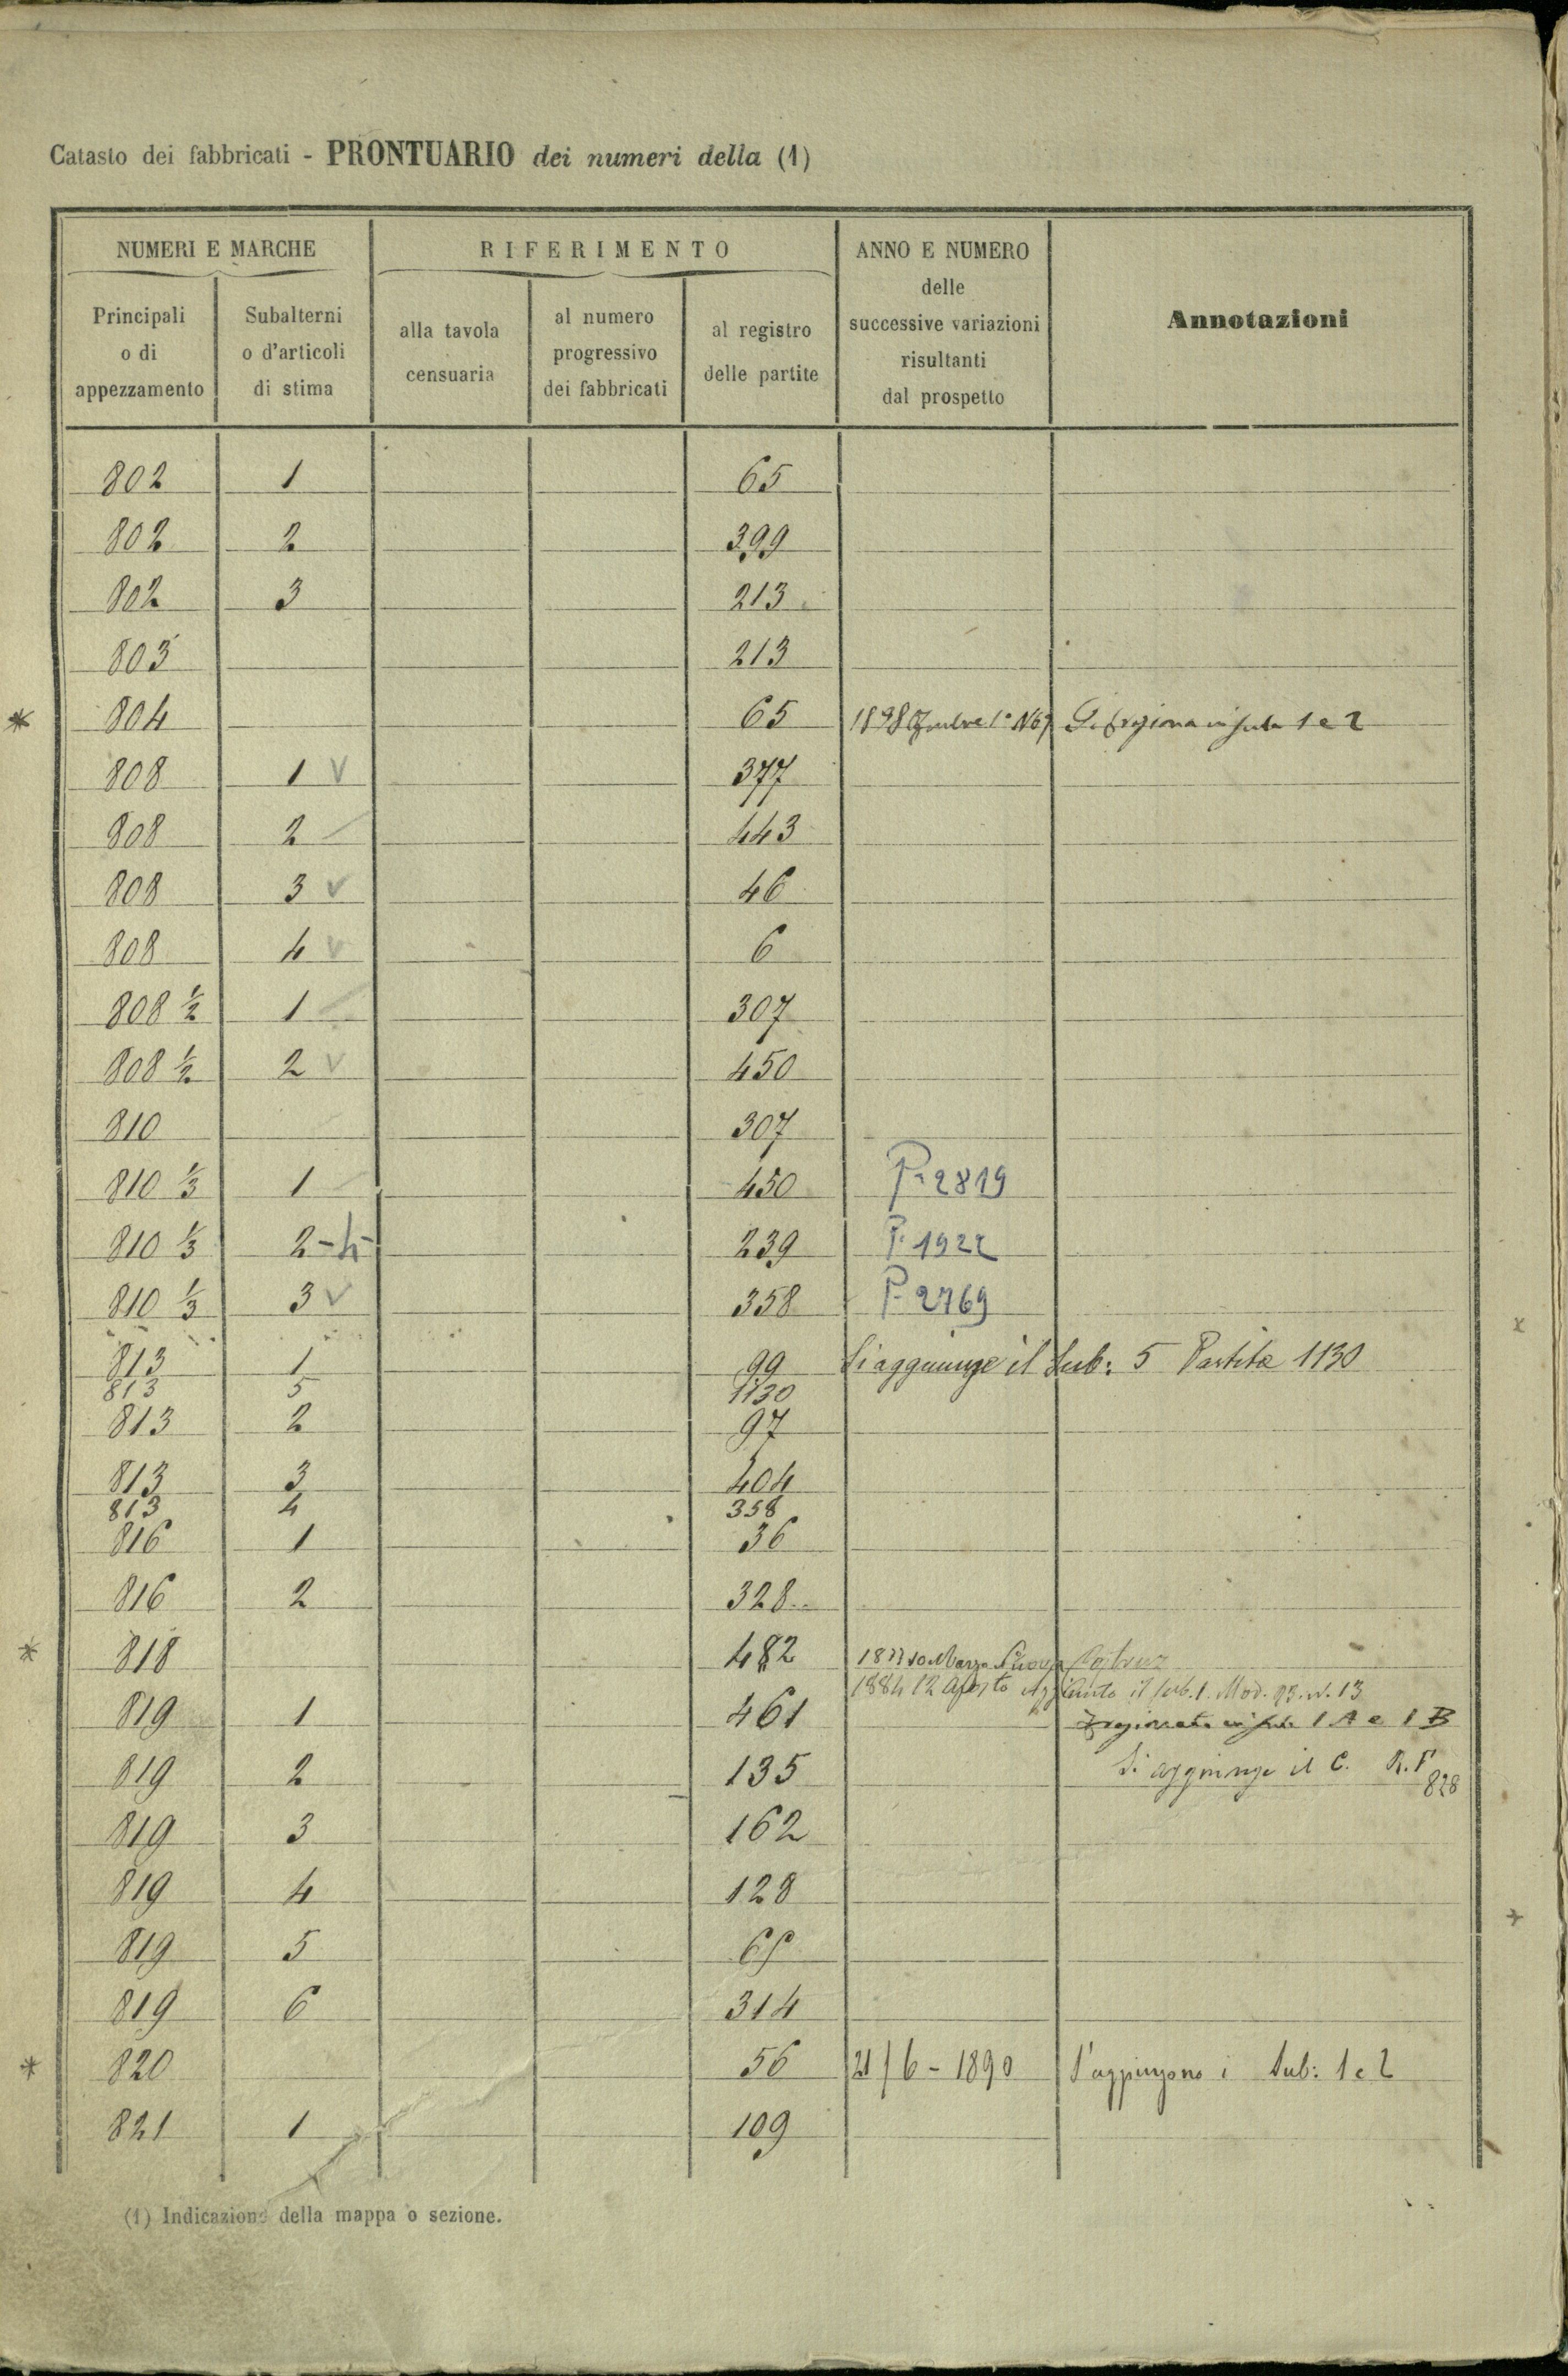 Catasto dei fabbricati - PRONTUARIO dei numeri della (1)
NUMERI E MARCHE
RIFERIMENTO
ANNO E NUMERO
delle
successive variazioni
risultanti
dal prospetto
Annotazioni
Principali
o di
appezzamento
Subalterni
o d'articoli
di stima
alla tavola
censuaria
al numero
progressivo
dei fabbricati
al registro
delle partite
802 1 65
802 2 399
802 3 213
803 213
* 804 65 1898 1° N° Si fraziona in sub 1 e 2
808 1 V 377
808 2 443
808 3 V 46
808 4 V 6
808 ½ 1 307
808 ½ 2 V 450
810 307
810 ⅓ 1 450 P. 2819
810 ⅓ 2 -4- 239 P. 1922
810 ⅓ 3 V 358 P. 2769
813 1 99 Si aggiunge il Sub: 5 Partita 1130
813 5 1130
813 2 97
813 3 404
813 4 358
816 1 36
816 2 328
* 818 482 10 Marzo Nuova
1884 12 Agosto Aggiunto il sub. 1. Mod. 23. N. 13
819 1 461 in sub 1 A e 1 B
819 2 135 Si aggiunge il C. R. P. 828
819 3 162
819 4 128
819 5
819 6 314
* 820 56 21/6 - 1890 S'aggiungono i Sub: 1 e 2
821 1 109
(1) Indicazione della mappa o sezione.